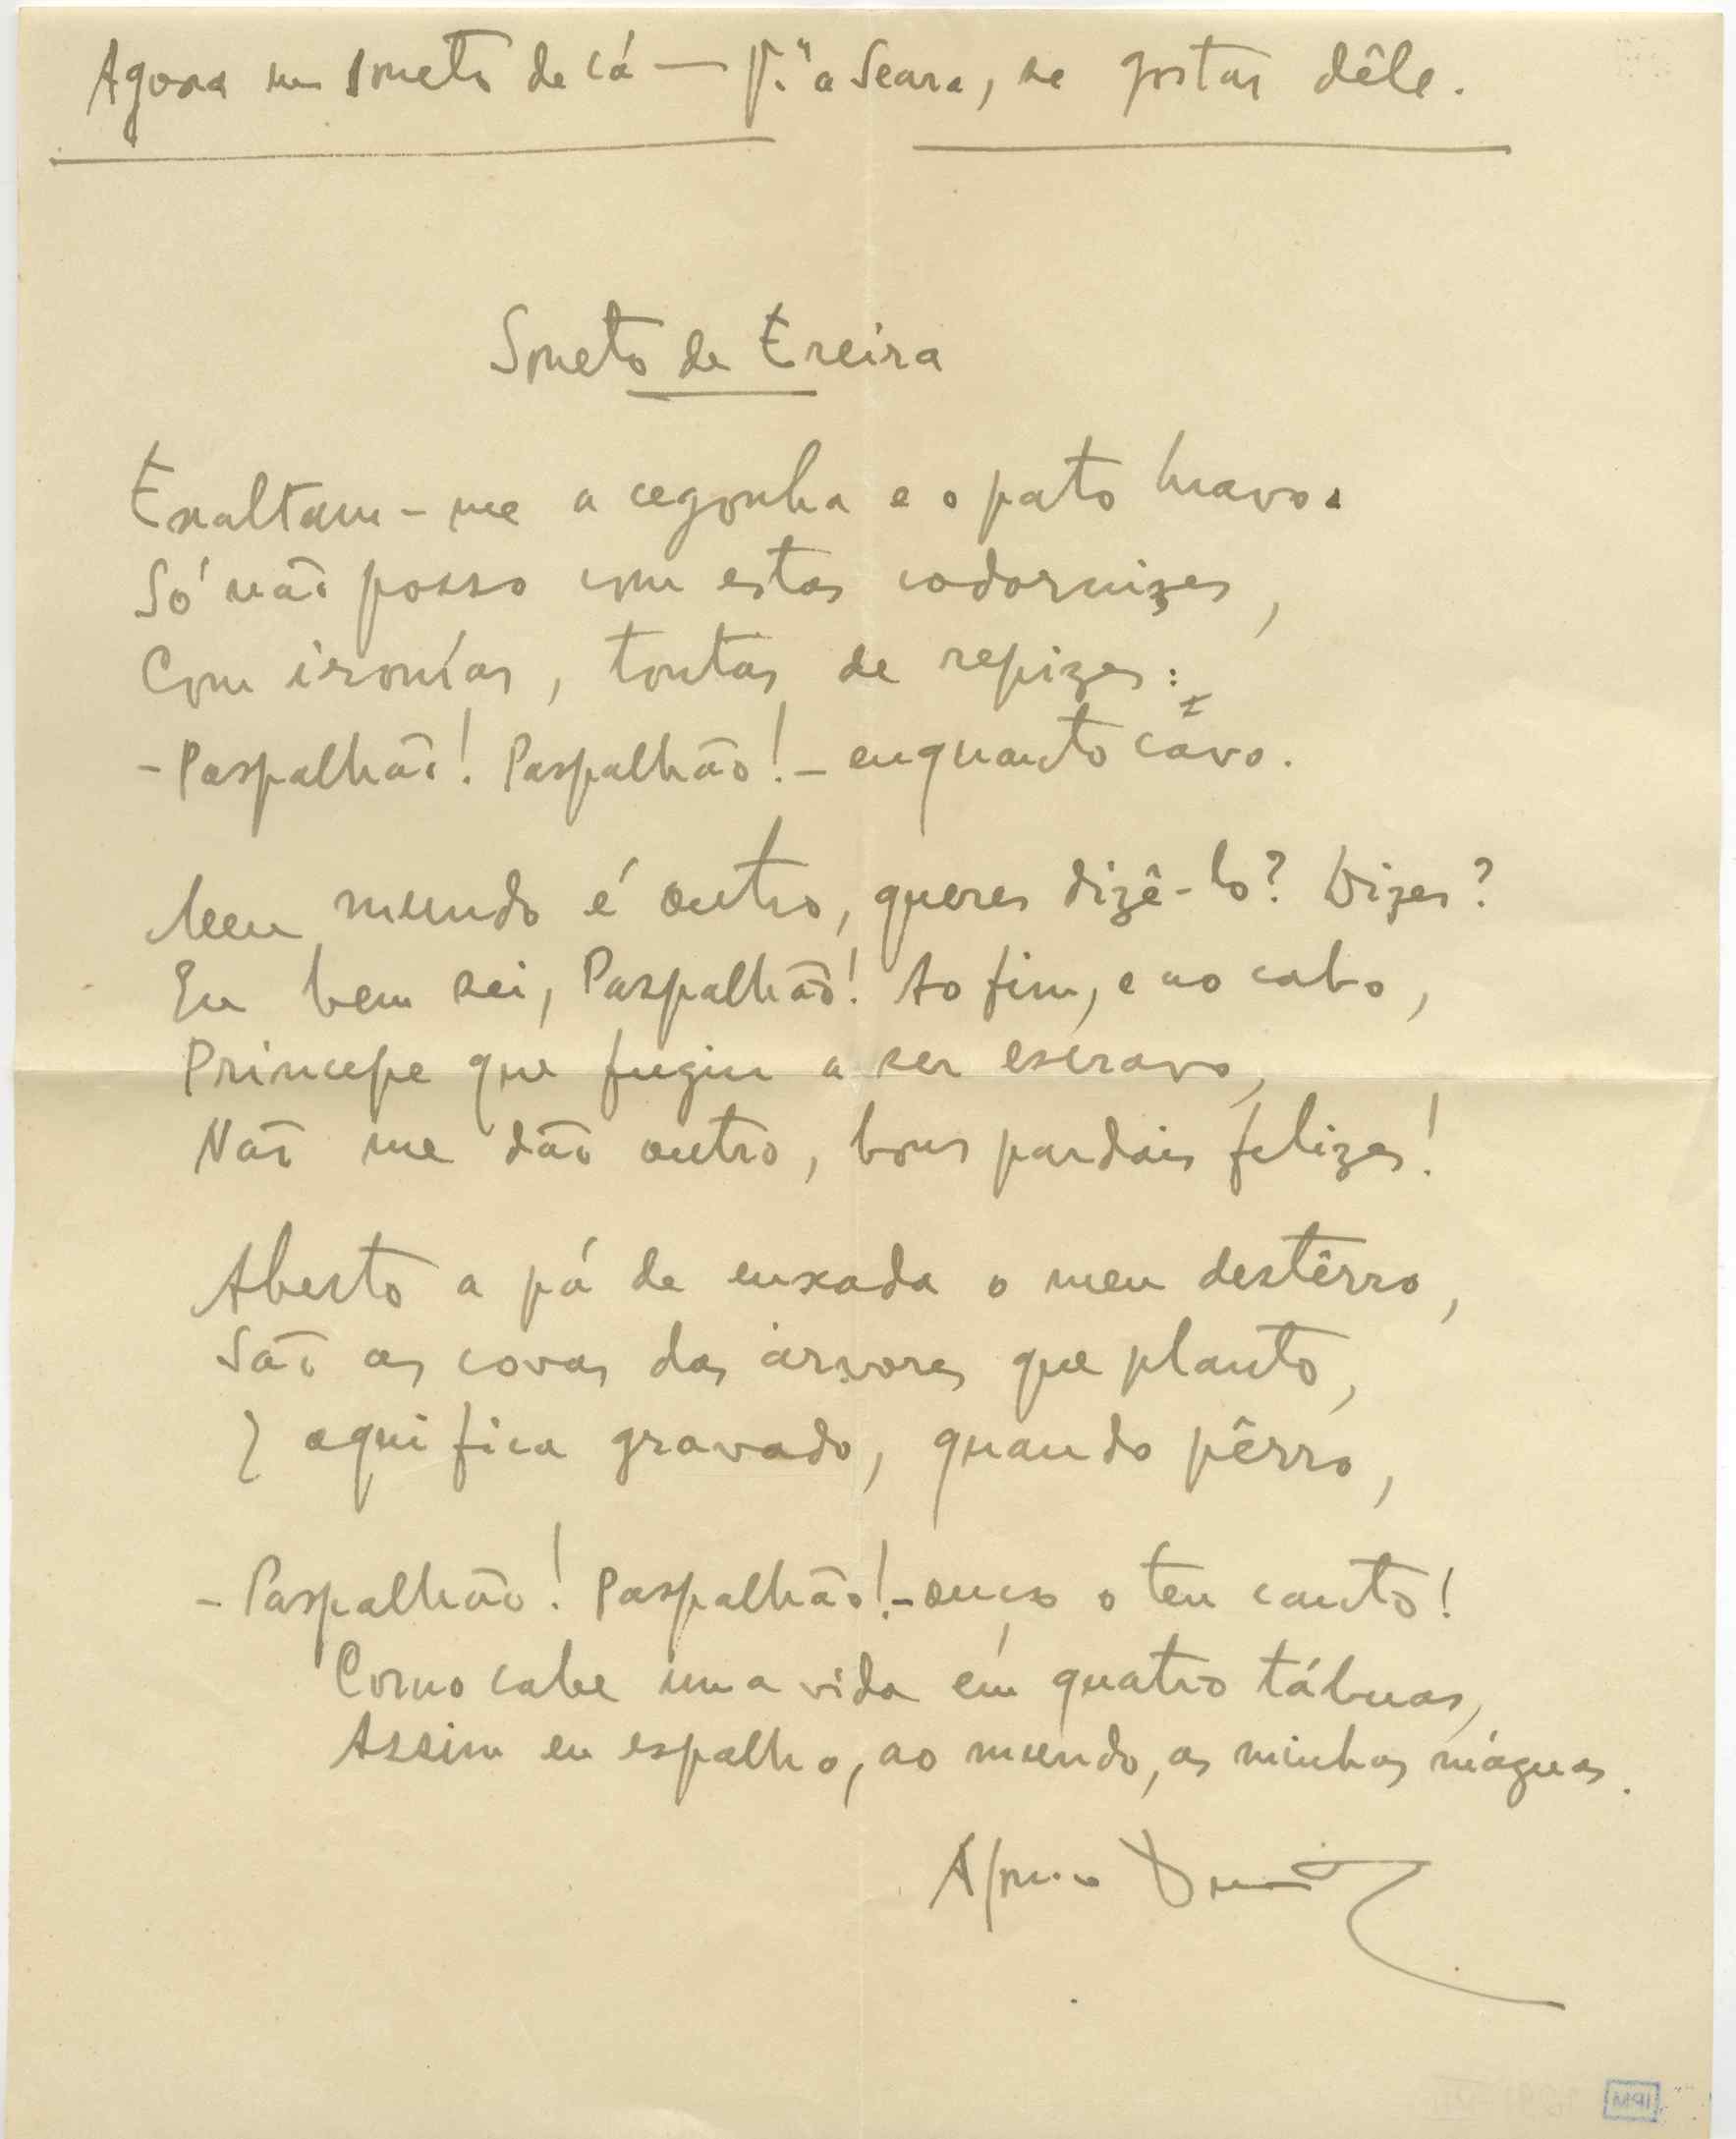 Agora um soneto de cá — P.ª a Seara, se gostar dêle.
Soneto de Ereira
Exaltam-me a cegonha e o pato bravo.
Só não posso com estas codornizes,
Com ironías, tontas de repizes:
- Paspalhão! Paspalhão! - enquanto cavo.
Meu mundo é outro, queres dizê-lo? Dizes?
Eu bem sei, Paspalhão! Ao fim, e ao cabo,
Principe que fugiu a ser escravo,
Não me dão outro, bons pardais felizes!
Aberto a pá de enxada o meu destêrro,
São as covas das árvores que planto,
E aqui fica gravado, quando pêrro,
- Paspalhão! Paspalhão! - ouço o teu canto!
Como cabe uma vida em quatro tábuas,
Assim eu espalho, ao mundo, as minhas máguas.
Afonso Duarte
IPM